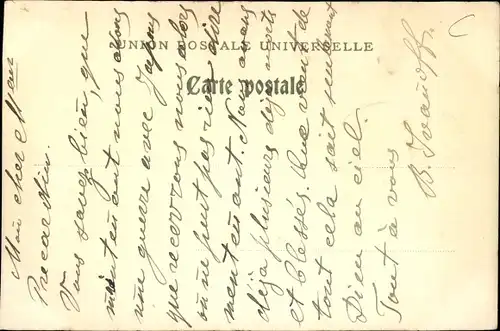 UNION POSTALE UNIVERSELLE
Carte postale
Mon cher Mon
Precar Nin.
Vous savez bien, que
maintenant nous avons
une guerre avec Japon
que recevrons nous alors
on ne peut pas rien dire
maintenant. Nous avons
déjà plusieurs déjà morts
et blessés. Que veut de
tout cela sait seulement
Dieu au ciel.
Tout à vous
B. Ivanoff.